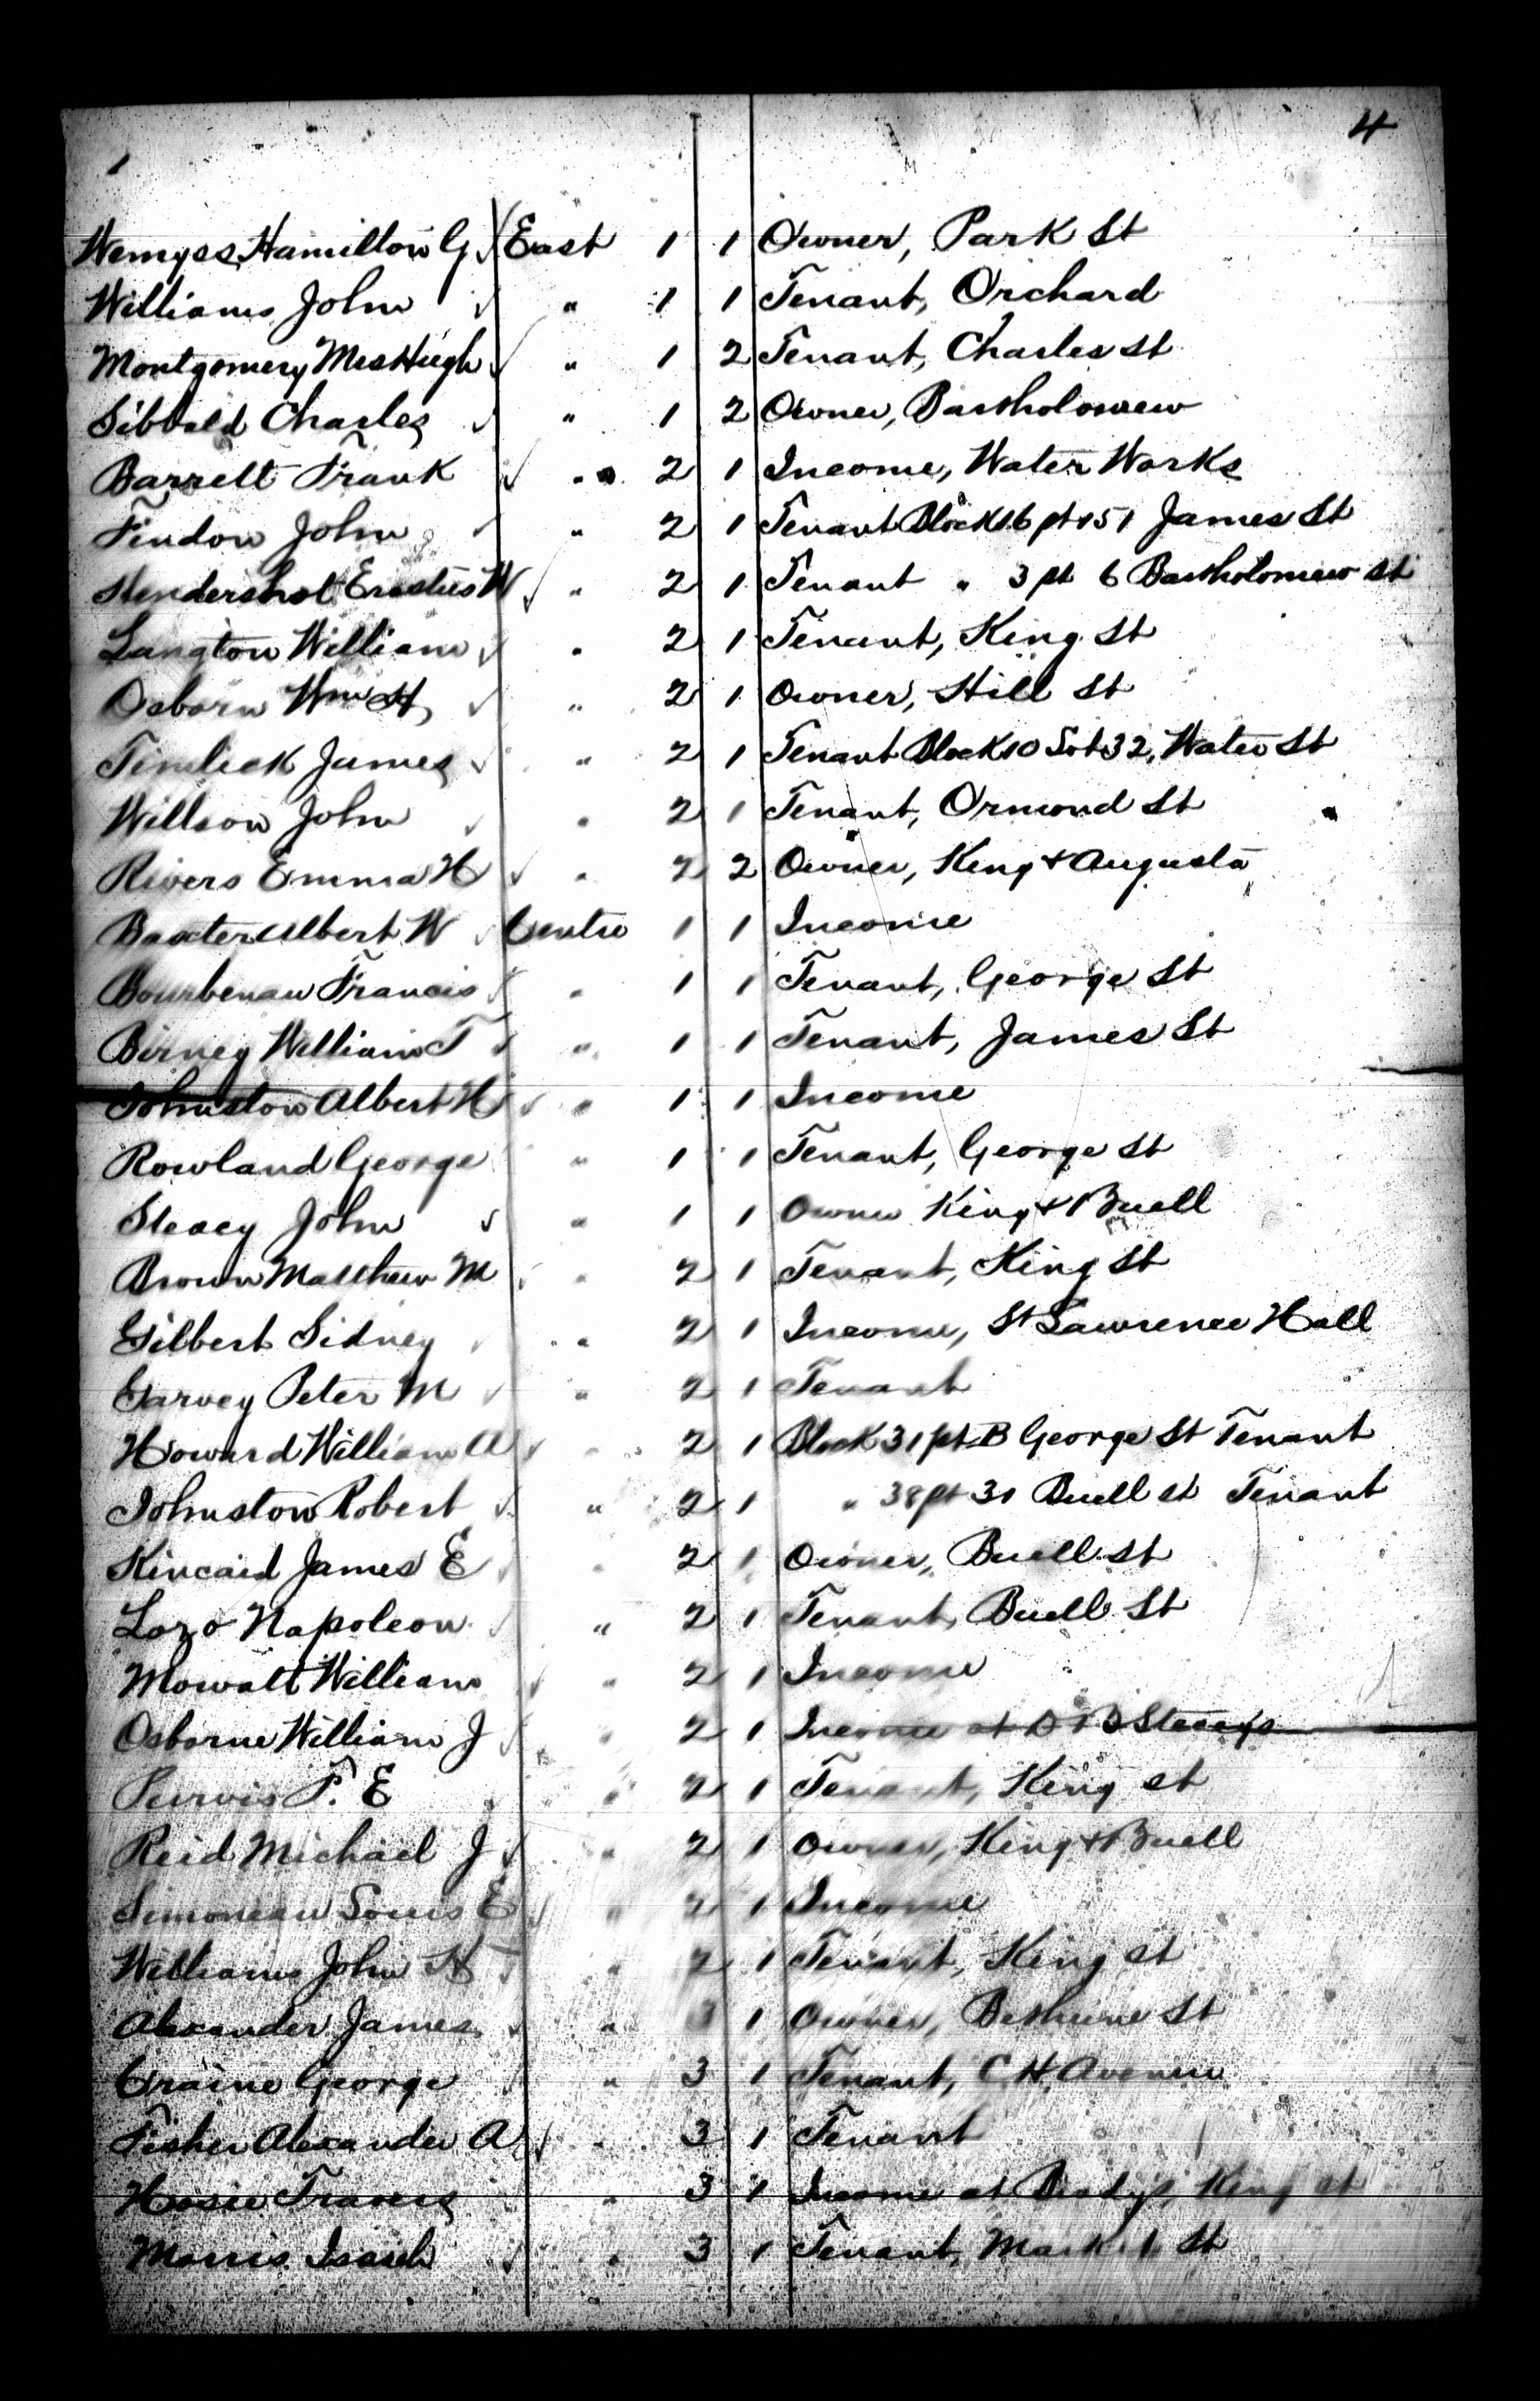 4
Wemyss Hamilton G East 1 1 Owner, Park St
Williams John " 1 1 Tenant, Orchard
Montgomery Mrs Hugh " 1 2 Tenant, Charles St
Sibbald Charles " 1 2 Owner, Bartholomew
Barrett Frank " 2 1 Income, Water Works
Findon John " 2 1 Tenant Block 16 pt 51 James St
Hendershot Erastus W " 2 1 Tenant " 3 pt 6 Bartholomew St
Langton William " 2 1 Tenant, King St
Osborn Wm H " 2 1 Owner, Hill St
Timlick James " 2 1 Tenant Block 10 Lot 32, Water St
Willson John " 2 1 Tenant, Ormond St
Rivers Emma H " 2 2 Owner, King & Augusta
Baxter Albert W Centre 1 1 Income
Bourbenau Francis " 1 1 Tenant, George St
Birney William T " 1 1 Tenant, James St
Johnston Albert H " 1 1 Income
Rowland George " 1 1 Tenant, George St
Stacey John " 1 1 Owner King & Buell
Brown Matthew M " 2 1 Tenant, King St
Gilbert Sidney " 2 1 Income, St Lawrence Hall
Garvey Peter M " 2 1 Tenant
Howard William A " 2 1 Block 31 pt B George St Tenant
Johnston Robert " 2 1 " 38 pt 31 Buell St Tenant
Kincaid James E " 2 1 Owner, Buell St
Lozo Napoleon " 2 1 Tenant, Buell St
Mowatt William " 2 1 Income
Osborne William J " 2 1 Income at
Purvis P. E " 2 1 Tenant, King St
Reid Michael J " 2 1 Owner, King & Buell
Simoneau Louis E " 2 1 Income
Williams John H " 2 1 Tenant, King St
Alexander James " 3 1 Owner, Bethune St
Craine George " 3 1 Tenant, C H Avenue
Fisher Alexander A " 3 1 Tenant
Hosie Francis " 3 1 Income at King St
Morris Isaiah " 3 1 Tenant, Market St